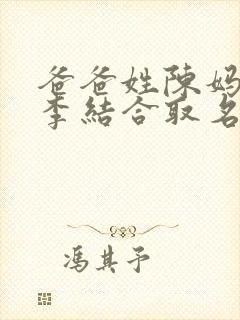 爸爸姓陳妈
李結合取名
馮其予